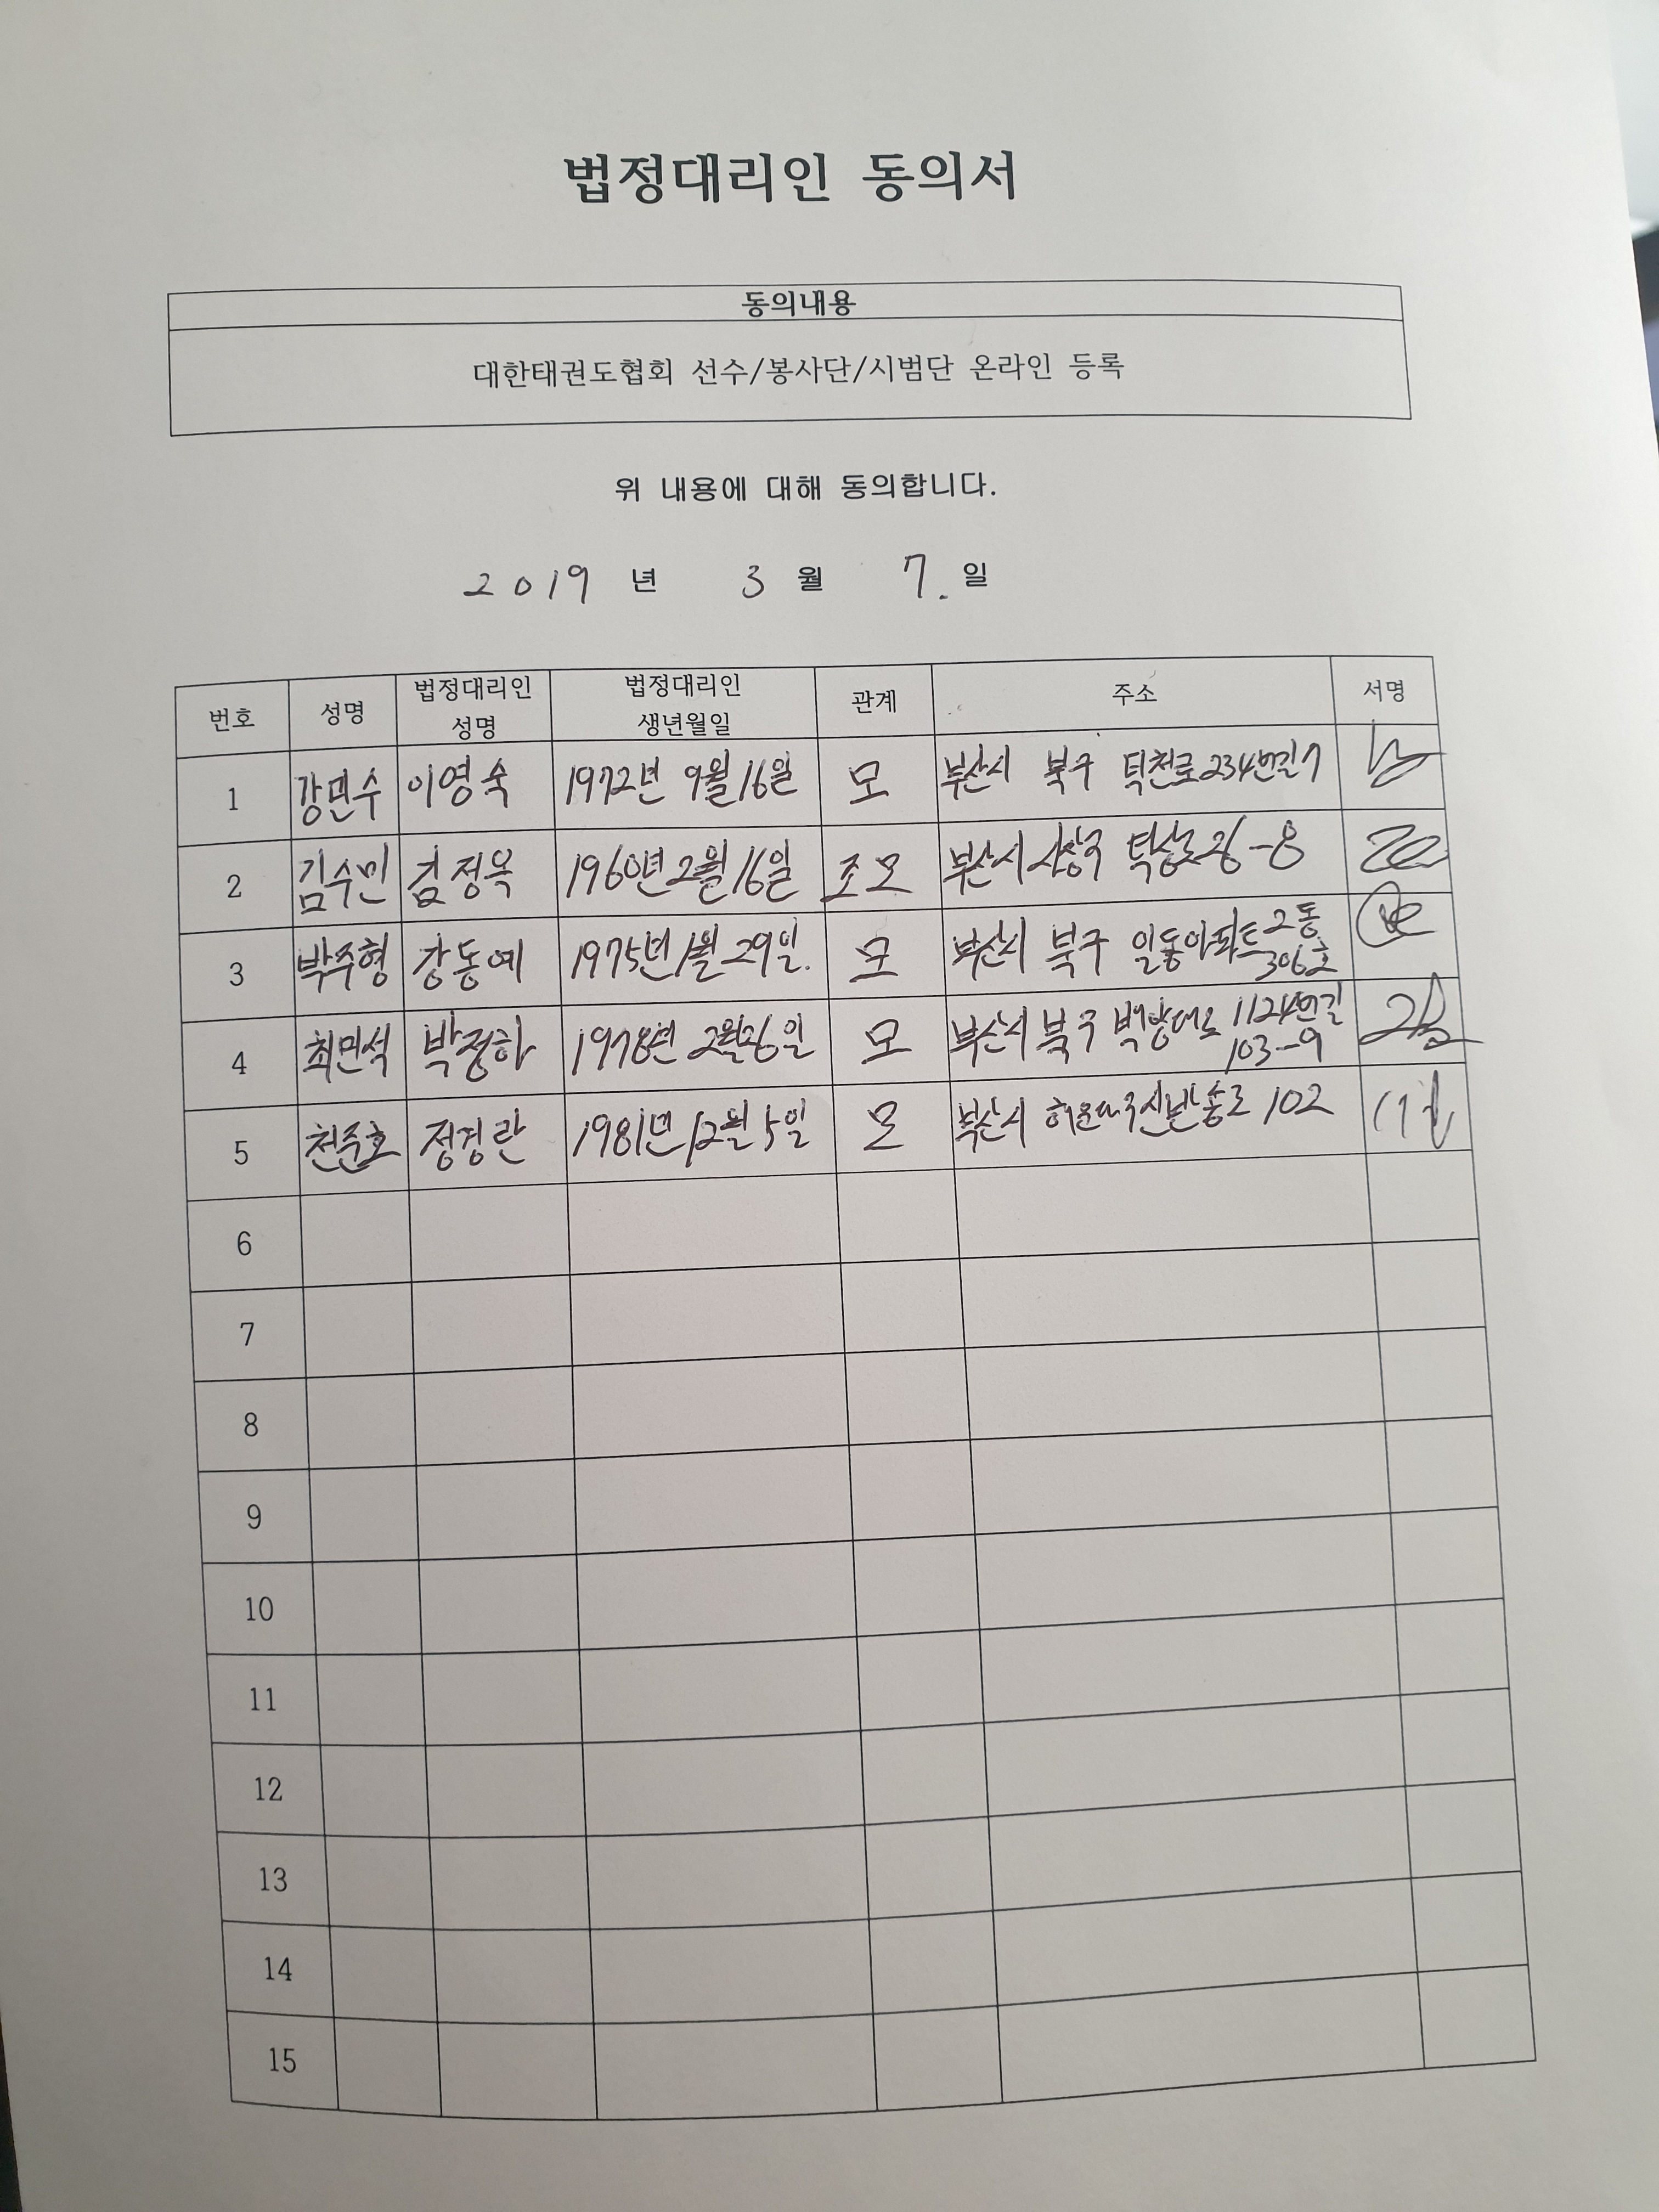 법정대리인 동의서
동의내용
대한태권도협회 선수/봉사단/시범단 온라인 등록
위 내용에 대해 동의합니다.
2019 년 3 월 7. 일
번호 성명 법정대리인 성명 법정대리인 생년월일 관계 주소 서명
1 강민수 이영숙 1972년 9월 16일 모 부산시 북구 덕천로 234번길 7
2 김수민 김정옥 1960년 2월 16일 조모 부산시 사상구 26-8
3 박주형 강동예 1975년 1월 29일. 모 부산시 북구 일동아파트 2동 306호
4 최민석 박정하 1978년 2월 26일 모 부산시 북구 백양대로 1124번길 103-9
5 천준호 정경란 1981년 12월 5일 모 부산시 해운대구 신반송로 102
6
7
8
9
10
11
12
13
14
15